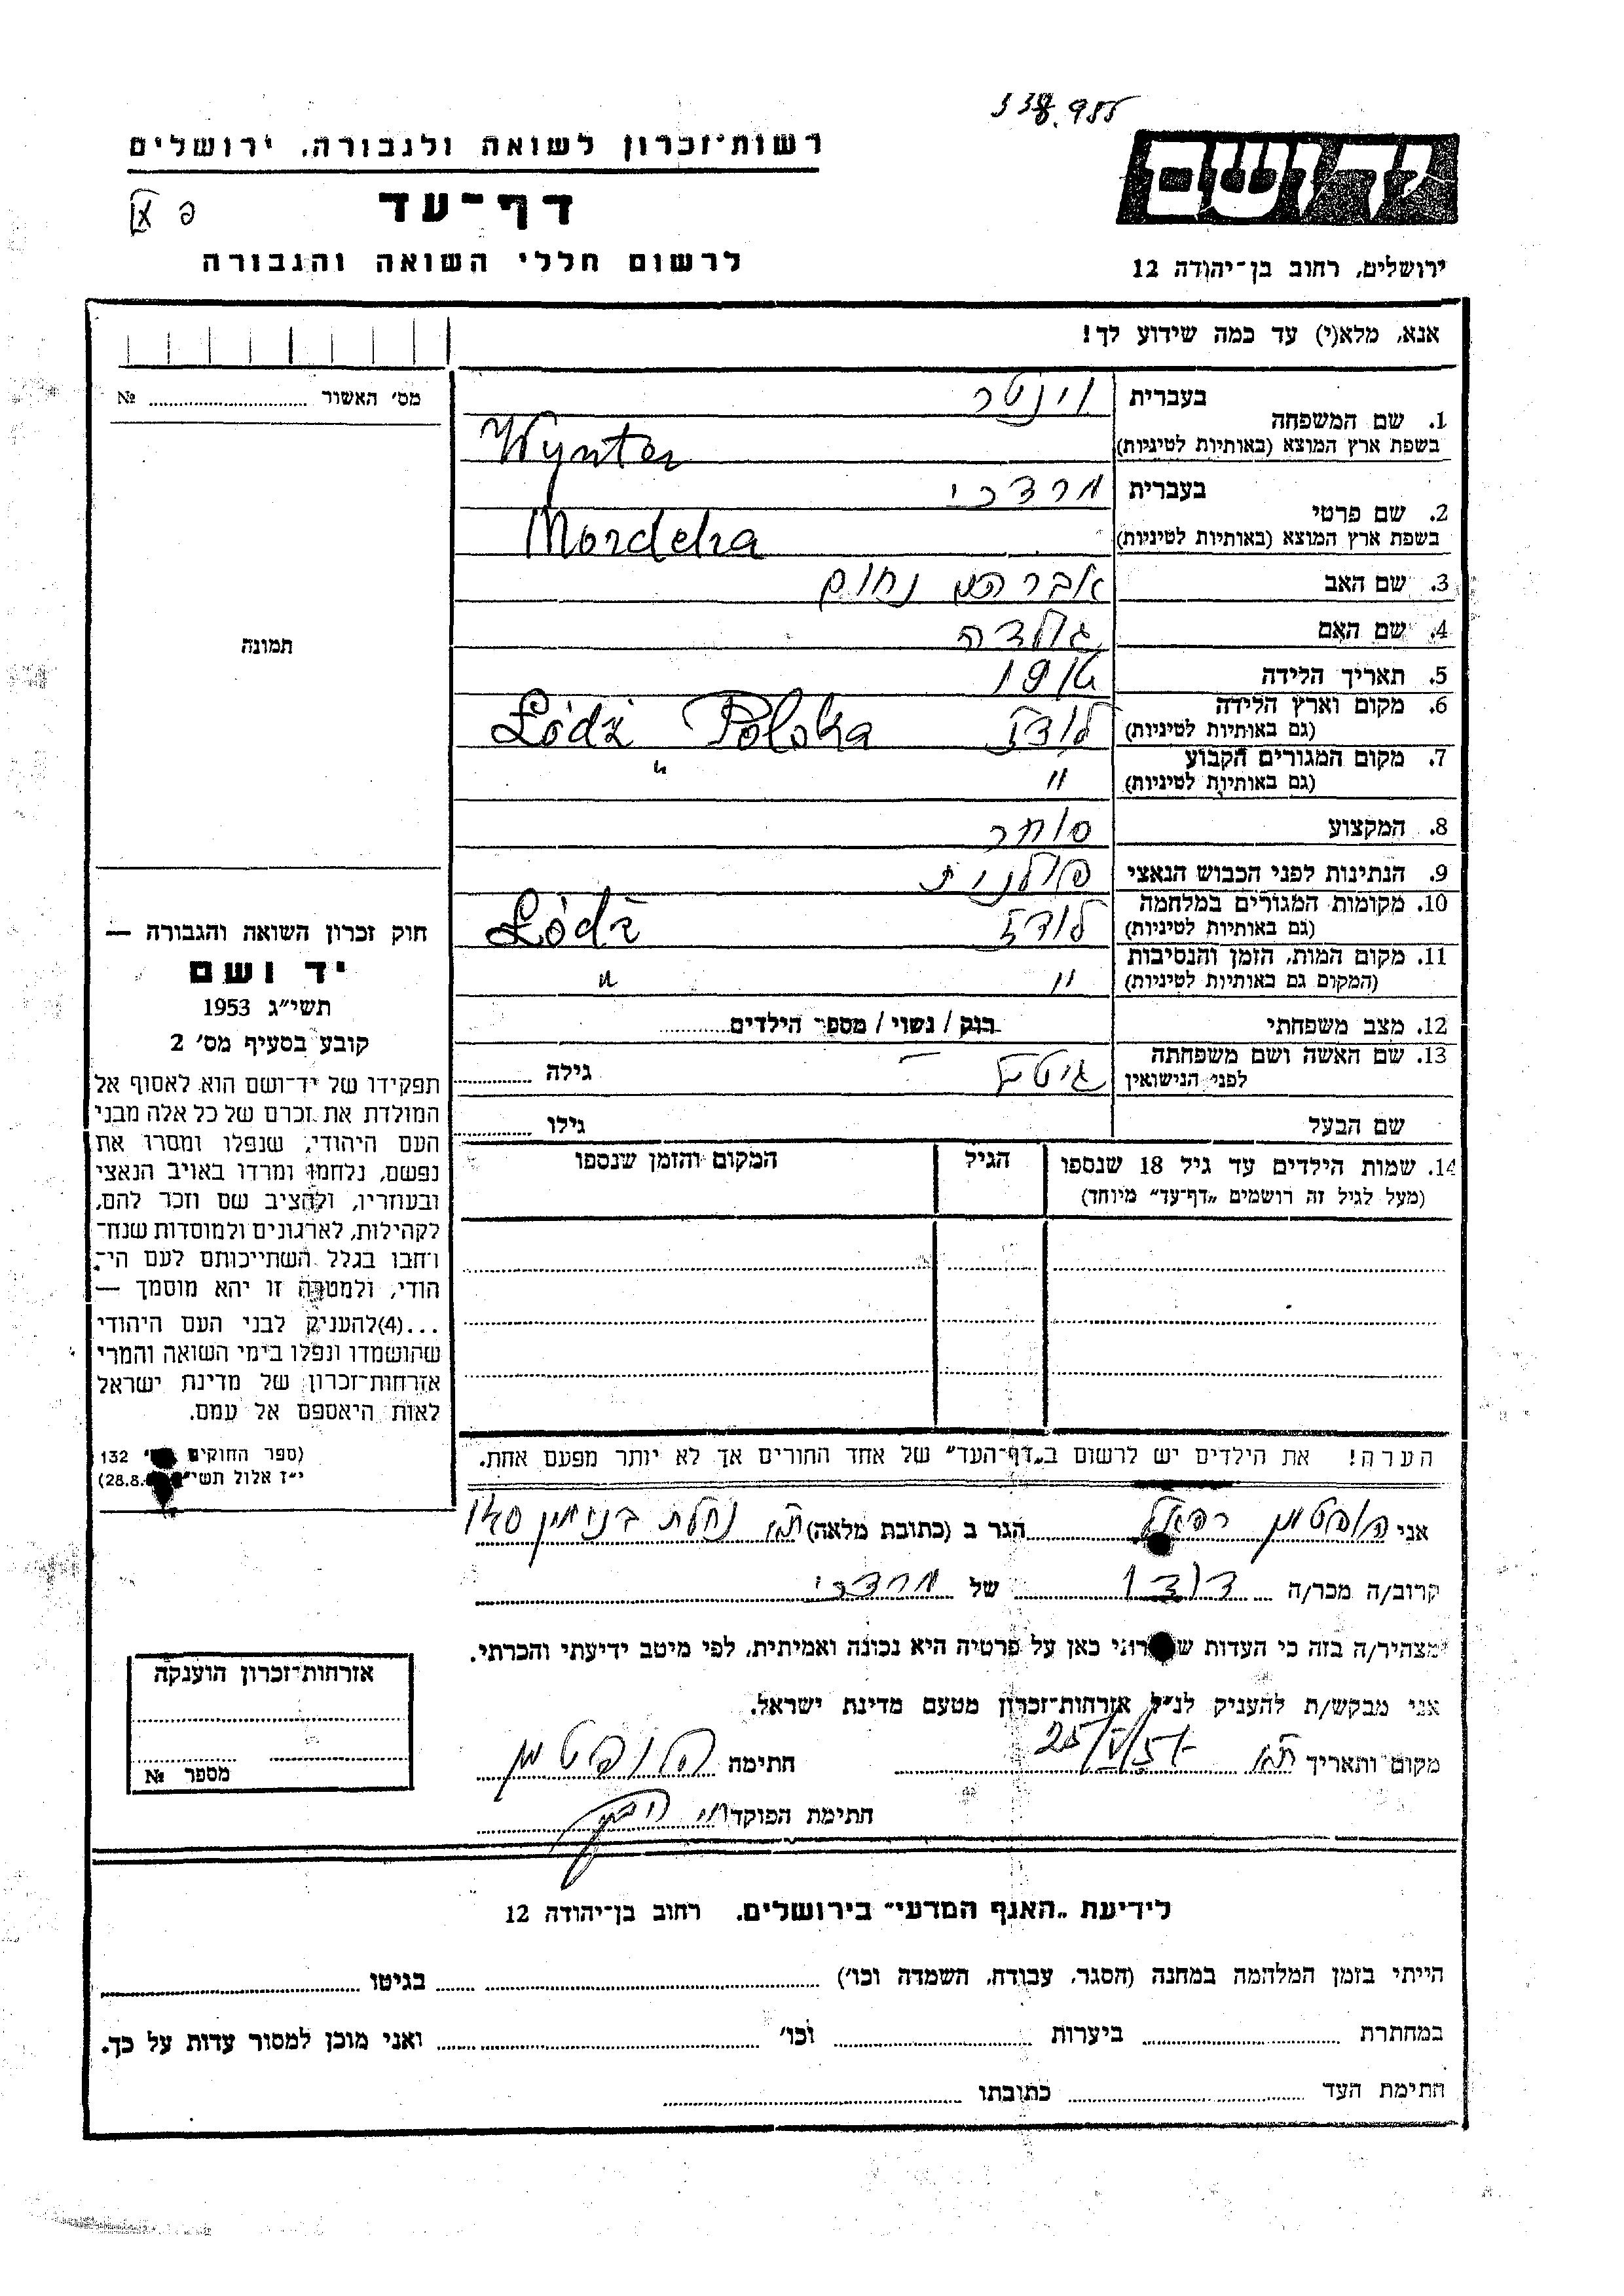 338.955
רשות־זכרון לשואה ולגבורה, ירושלים
יד ושם
דף־עד
לרשום חללי השואה והגבורה
ירושלים, רחוב בן־יהודה 12
אנא, מלא(י) עד כמה שידוע לך!
מס׳ האשור № 
1. שם המשפחה
בעברית וינטר
בשפת ארץ המוצא (באותיות לטיניות) Wynter
2. שם פרטי
בעברית מרדכי
בשפת ארץ המוצא (באותיות לטיניות) Mordcha
3. שם האב אברהם נחום
4. שם האם גולדה
5. תאריך הלידה
6. מקום וארץ הלידה
(גם באותיות לטיניות) לודז Łódź Polska
7. מקום המגורים הקבוע
(גם באותיות לטיניות) " "
8. המקצוע סוחר
9. הנתינות לפני הכבוש הנאצי פולנית
10. מקומות המגורים במלחמה
(גם באותיות לטיניות) לודז Łódź
11. מקום המות, הזמן והנסיבות
(המקום גם באותיות לטיניות) " "
12. מצב משפחתי רוק / נשוי / מספר הילדים
13. שם האשה ושם משפחתה
לפני הנישואין גילה
שם הבעל גילו
14. שמות הילדים עד גיל 18 שנספו
(מעל לגיל זה רושמים „דף־עד" מיוחד)
הגיל
המקום והזמן שנספו
תמונה
חוק זכרון השואה והגבורה —
יד ושם
תשי״ג 1953
קובע בסעיף מס׳ 2
תפקידו של יד־ושם הוא לאסוף אל
המולדת את זכרם של כל אלה מבני
העם היהודי, שנפלו ומסרו את
נפשם, נלחמו ומרדו באויב הנאצי
ובעוזריו, ולהציב שם וזכר להם,
לקהילות, לארגונים ולמוסדות שנח־
רבו בגלל השתייכותם לעם הי־
הודי, ולמטרה זו יהא מוסמך —
...(4) להעניק לבני העם היהודי
שהושמדו ונפלו בימי השואה והמרי
אזרחות־זכרון של מדינת ישראל
לאות היאספם אל עמם.
(ספר החוקים 132
י״ז אלול תשי״ 28.8.)
הערה! את הילדים יש לרשום ב„דף־העד" של אחד ההורים אך לא יותר מפעם אחת.
אני הופטמן רפאל הגר ב (כתובת מלאה) ת"א נחלת בנימין
קרוב/ה מכר/ה דודו של מרדכי
מצהיר/ה בזה כי העדות כאן על פרטיה היא נכונה ואמיתית, לפי מיטב ידיעתי והכרתי.
אני מבקש/ת להעניק לנ״ל אזרחות־זכרון מטעם מדינת ישראל.
מקום ותאריך ת"א חתימה הופטמן
חתימת הפוקד
אזרחות־זכרון הוענקה
מספר №
לידיעת „האגף המדעי" בירושלים, רחוב בן־יהודה 12
הייתי בזמן המלחמה במחנה (הסגר, עבודה, השמדה וכו׳) בגיטו
במחתרת ביערות וכו׳ ואני מוכן למסור עדות על כך.
חתימת העד כתובתו